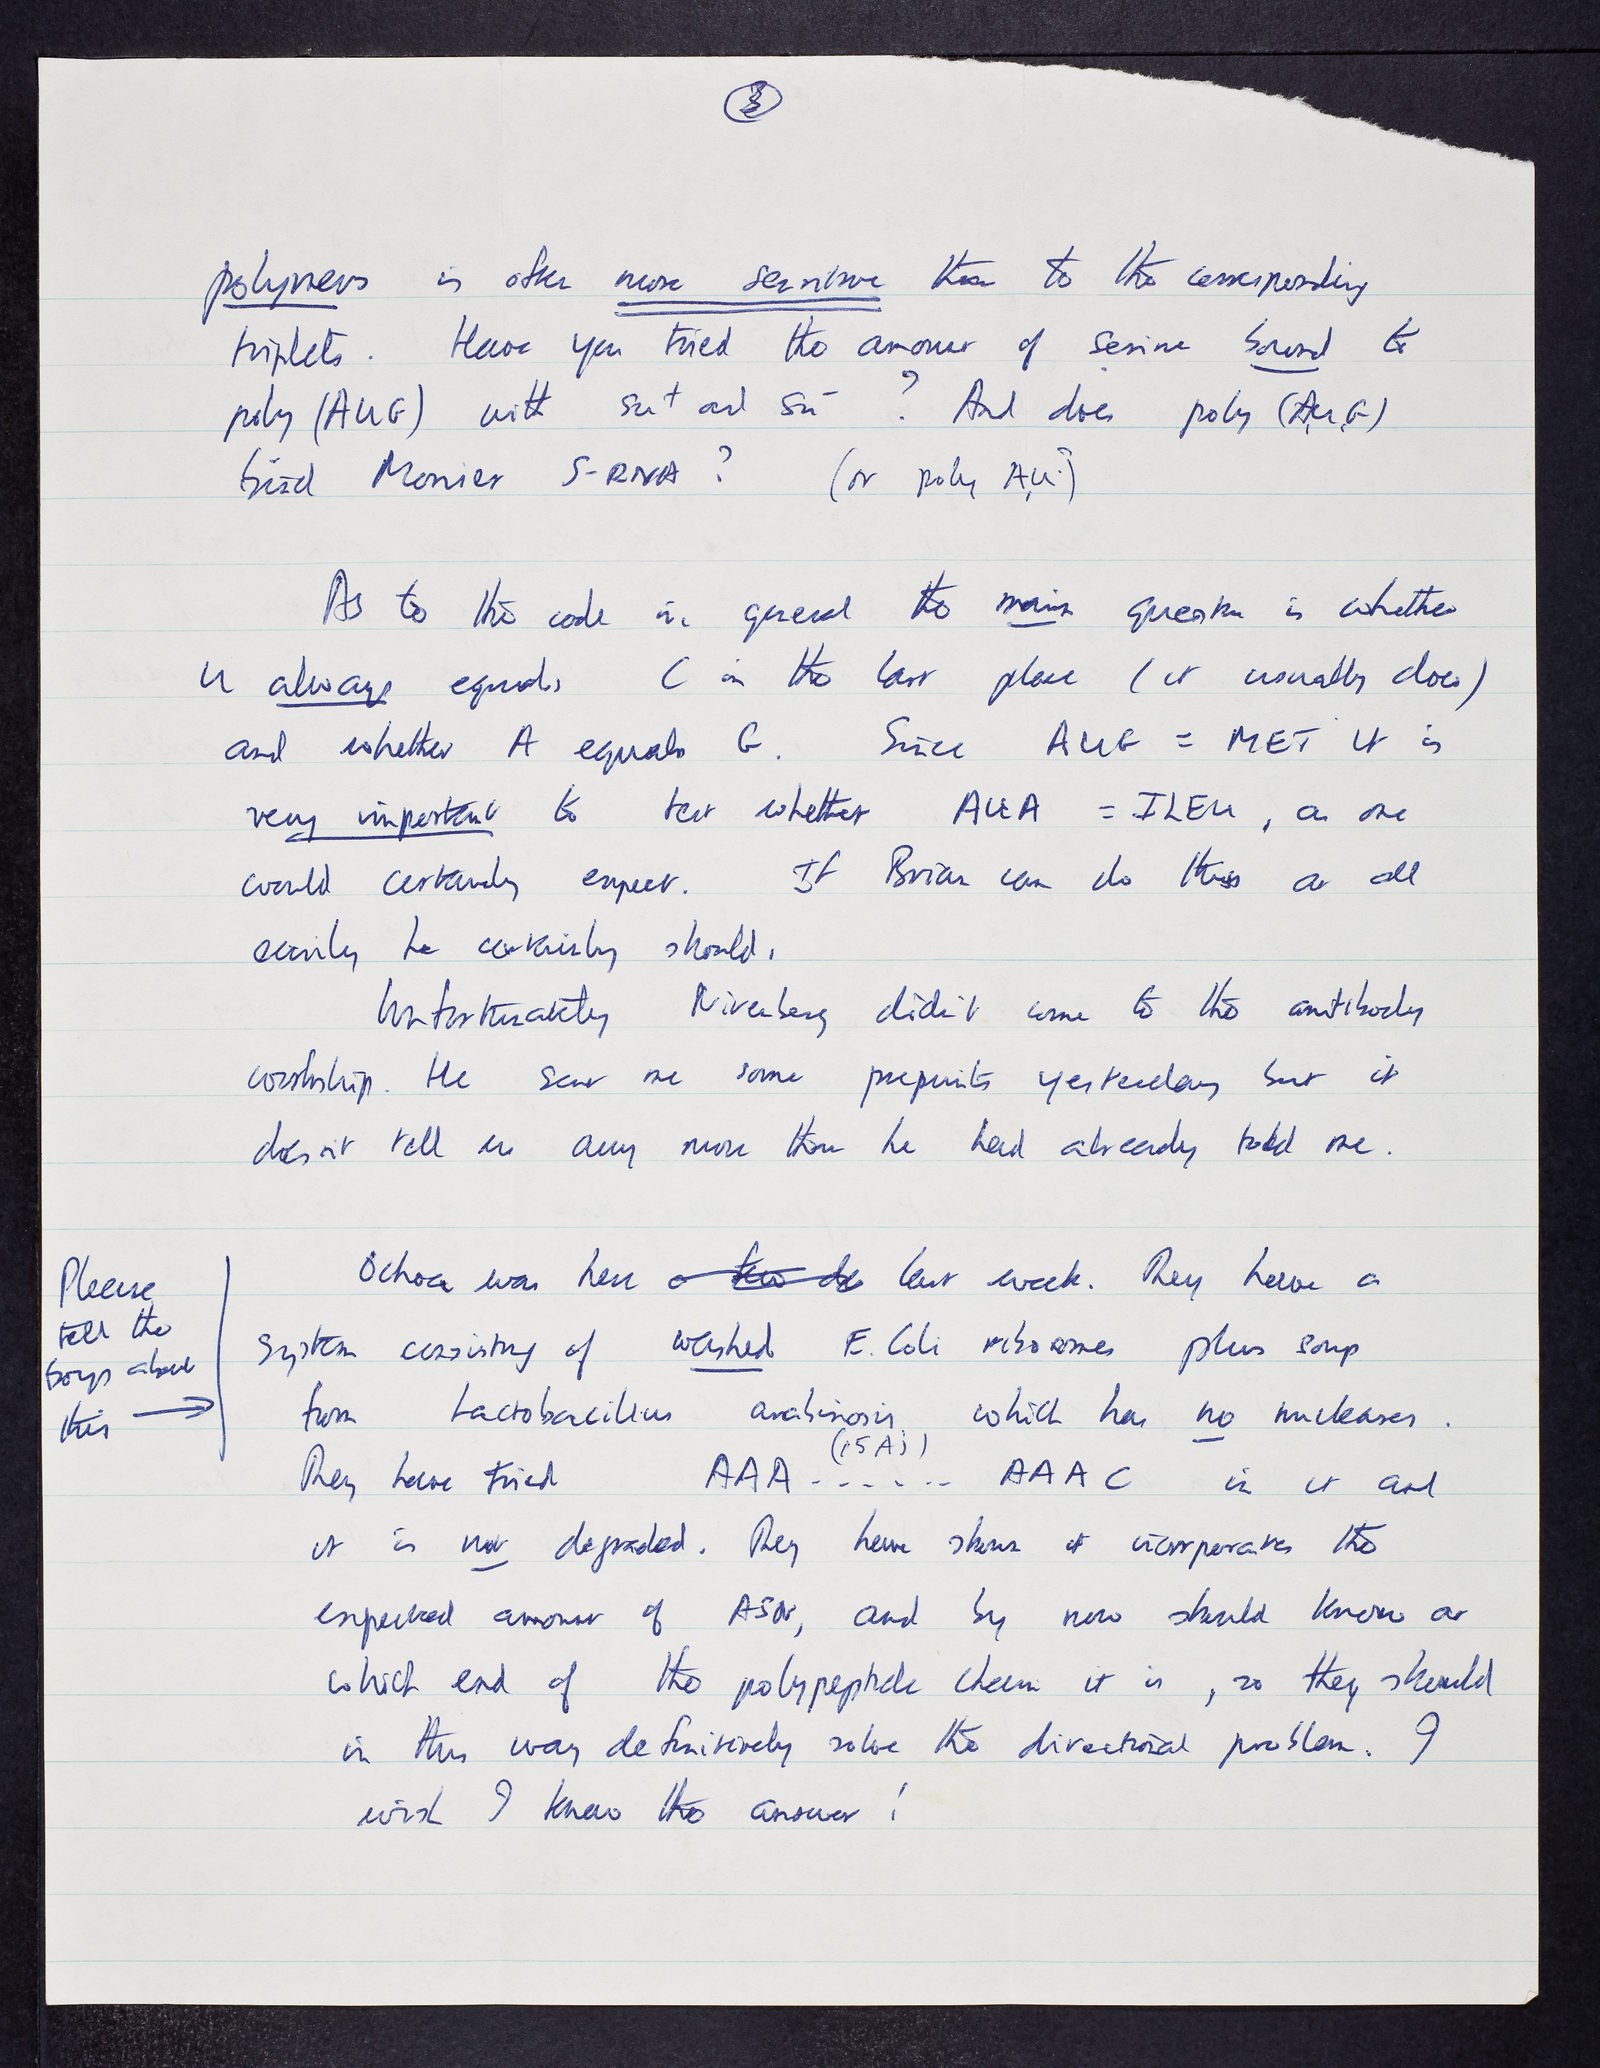 polymers is often more sensitive than to the corresponding
triplets. Have you tried the amount of serine bound to
poly (AUG) with su+ and su- ? And does poly (A,U,G)
bind Monier S-RNA ? (or poly A,U?)
As to the code in general the main question is whether
U always equals C in the last place (it usually does)
and whether A equals G. Since AUG = MET it is
very important to test whether AUA = ILEU, as one
would certainly expect. If Brian can do this at all
easily he certainly should.
Unfortunately Nirenberg didn't come to the antibody
workshop. He sent me some preprints yesterday but it
doesn't tell us any more than he had already told me.
Please
tell the
boys about
this →
Ochoa was here a few da last week. They have a
system consisting of washed E. Coli ribosomes plus soup
from Lactobacillus arabinosis which has no nucleases.
(15 A's)
They have tried AAA ...... AAAC in it and
it is not degraded. They have shown it incorporates the
expected amount of ASN, and by now should know at
which end of the polypeptide chain it is, so they should
in this way definitively solve the directional problem. I
wish I knew the answer!